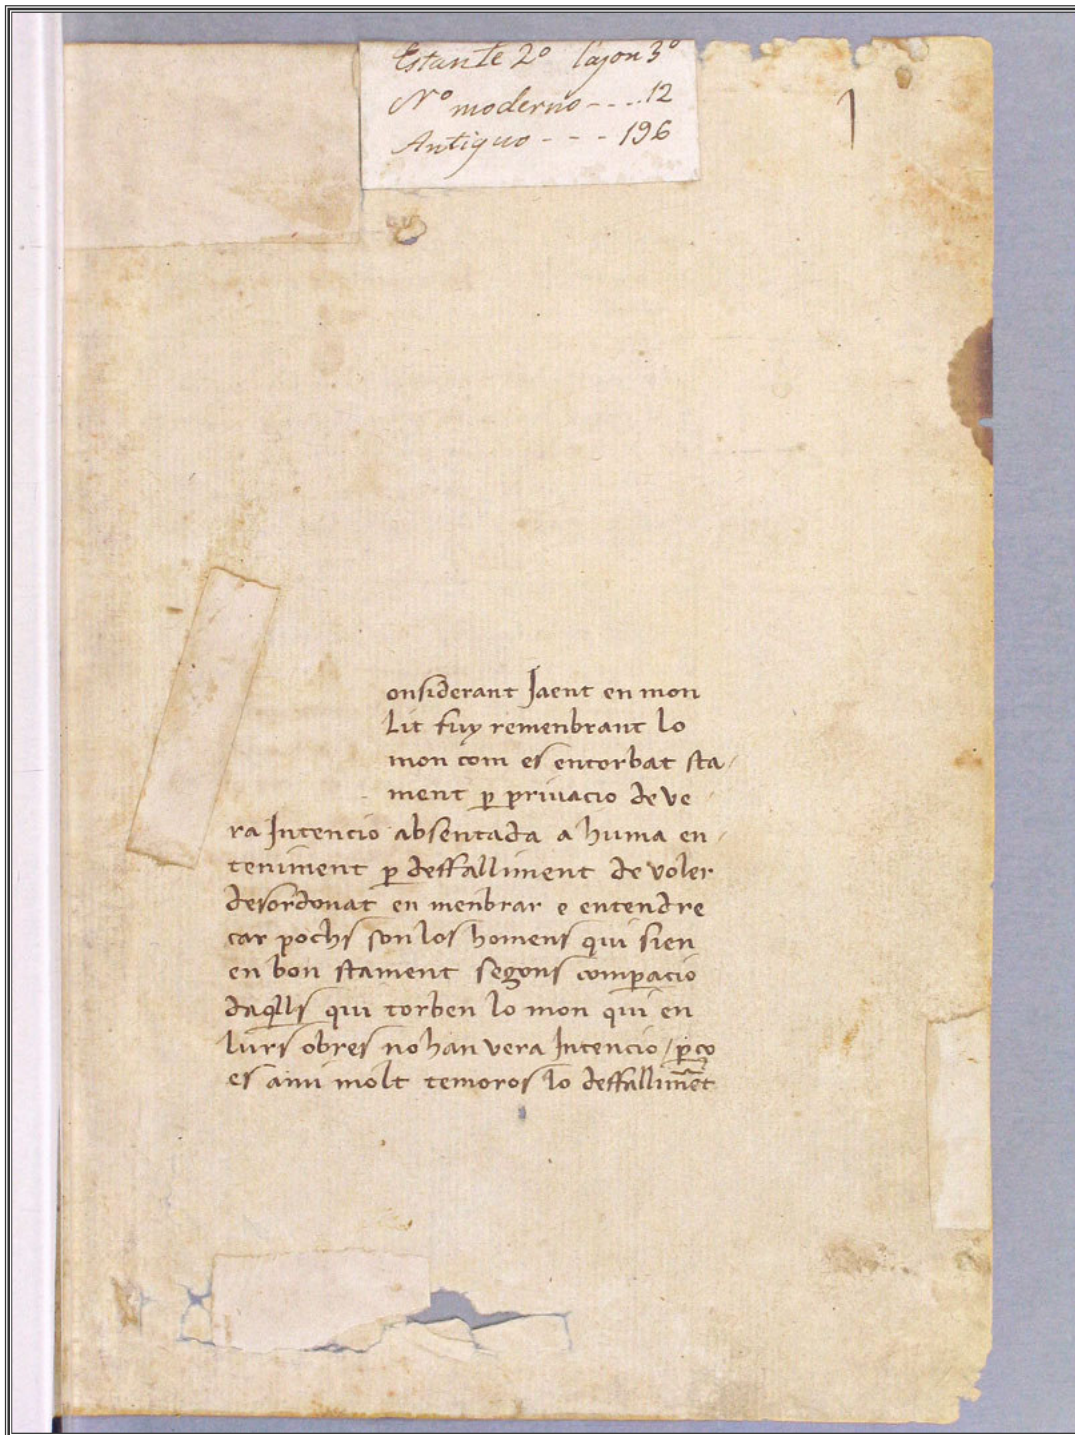 Estante 2º Cajon 3º
Nº moderno - - - . 12
Antiguo - - - 196
1
onsiderant Jaent en mon
Lit fuy remenbrant lo
mon com es entorbat sta
ment ꝑ priuacio de ve
ra Intencio absentada a huma en
teniment ꝑ deffalliment de voler
desordonat en menbrar e entendre
car pochs son los homens qui sien
en bon stament segons comꝑacio
daqlls qui torben lo mon qui en
lurs obres no han vera Intencio / ꝑço
es ami molt temoros lo deffallimēt